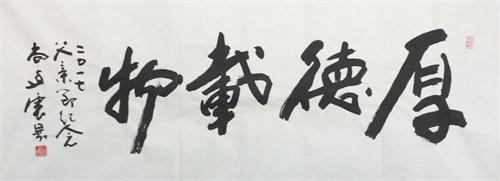 厚德載物
二〇一七
父亲節纪念